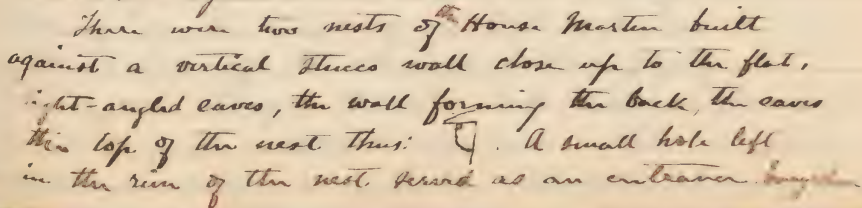 There were two nests of the House Martin built
against a vertical stucco wall close up to the flat,
right-angled eaves, the wall forming the back, the eaves
the top of the nest thus: . A small hole left
in the rim of the nest served as an entrance